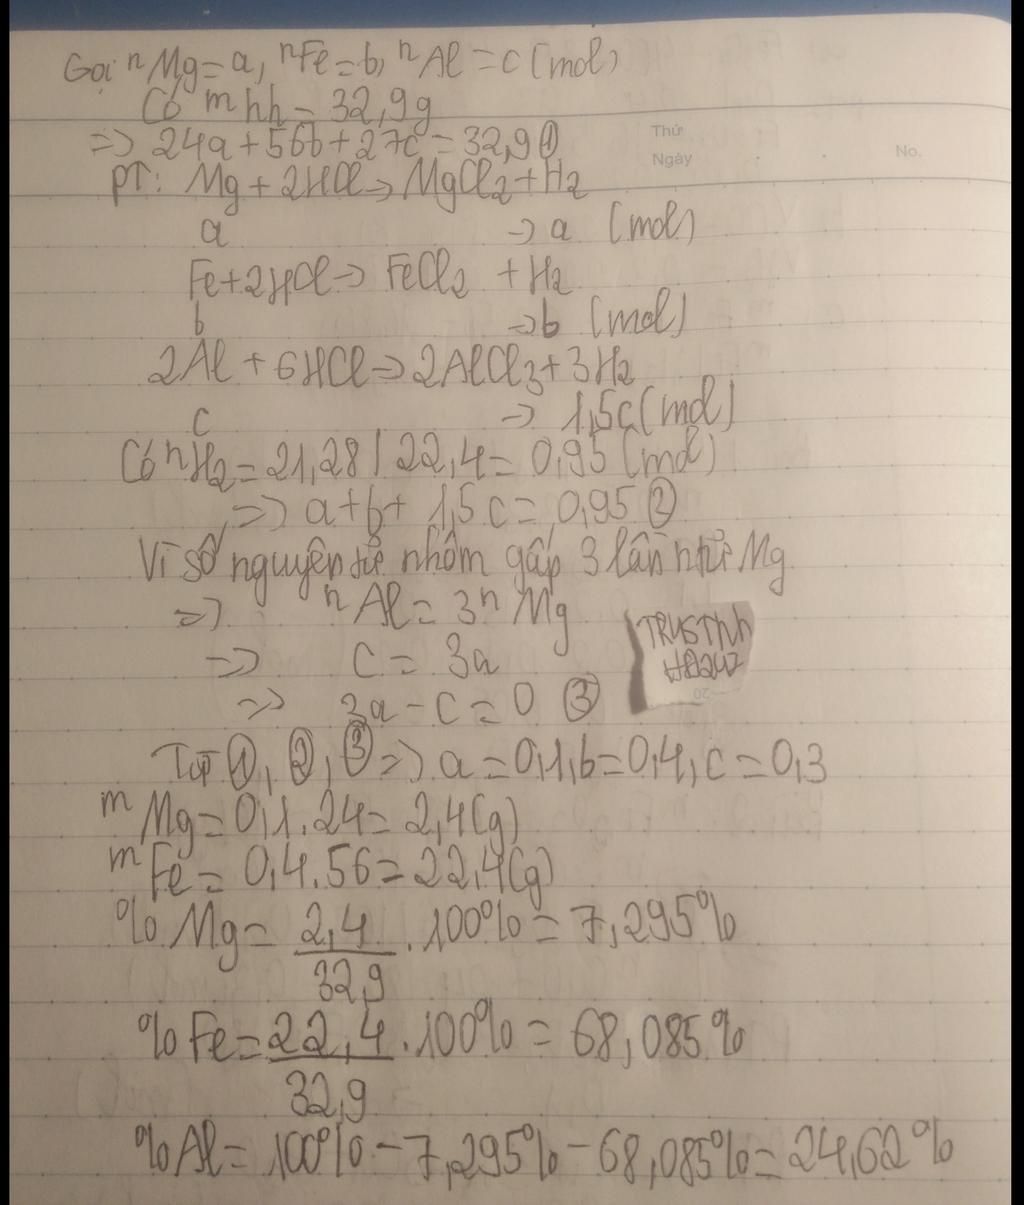 Gọi nMg = a, nFe = b, nAl = c (mol)
Có mhh = 32,9g
=> 24a + 56b + 27c = 32,9 ①
Thứ
Ngày
No.
PT: Mg + 2HCl -> MgCl2 + H2
a -> a (mol)
Fe + 2HCl -> FeCl2 + H2
b -> b (mol)
2Al + 6HCl -> 2AlCl3 + 3H2
c -> 1,5c (mol)
Có nH2 = 21,28 / 22,4 = 0,95 (mol)
=> a + b + 1,5c = 0,95 ②
Vì số nguyên tử nhôm gấp 3 lần ntử Mg
=> nAl = 3nMg
=> c = 3a
=> 3a - c = 0 ③
Từ ①, ②, ③ => a = 0,1, b = 0,4, c = 0,3
mMg = 0,1.24 = 2,4(g)
mFe = 0,4.56 = 22,4(g)
%Mg = 2,4/32,9 . 100% = 7,295%
%Fe = 22,4/32,9 . 100% = 68,085%
%Al = 100% - 7,295% - 68,085% = 24,62%